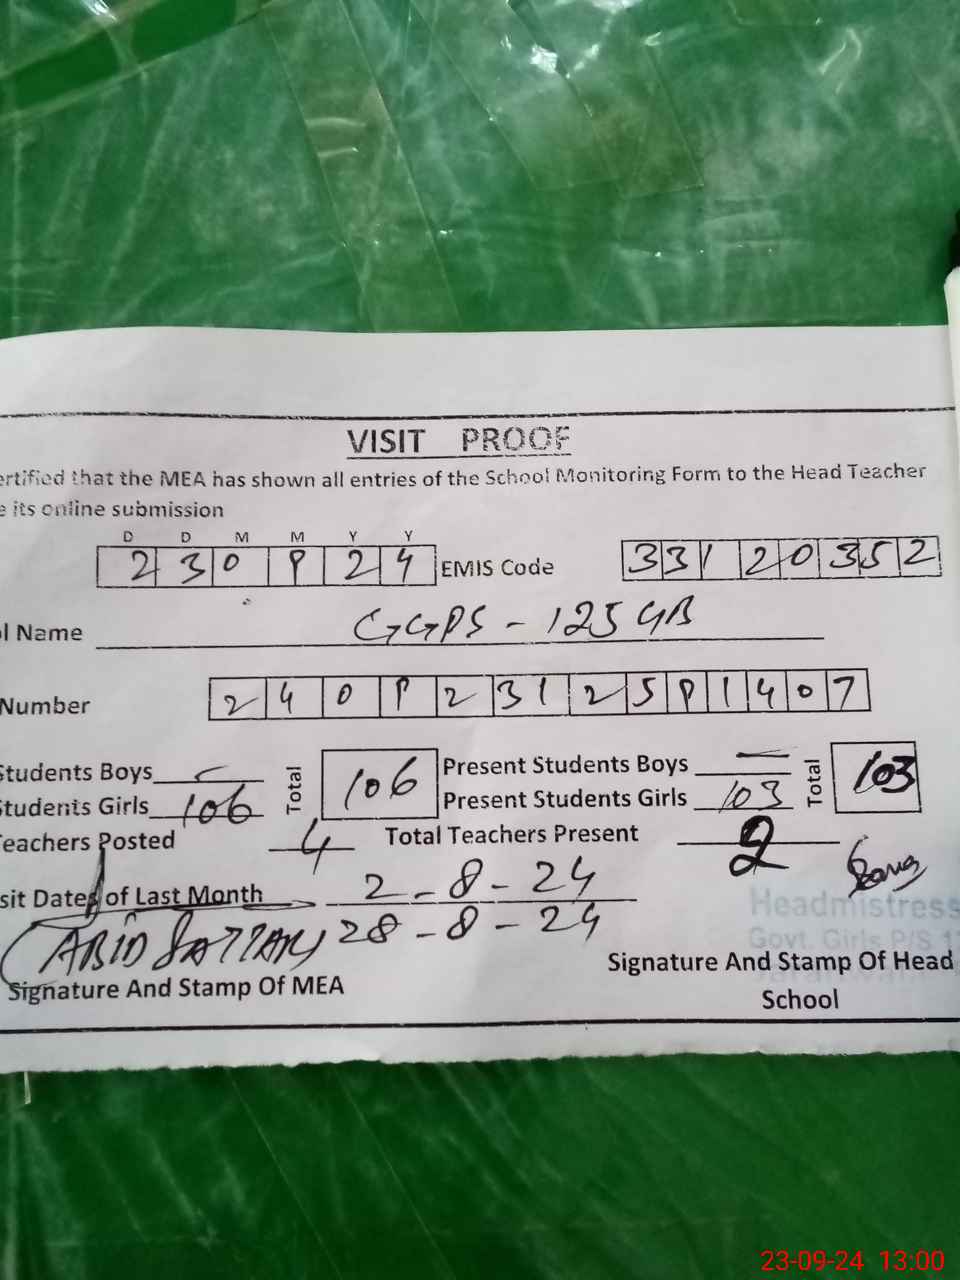 VISIT PROOF
ertified that the MEA has shown all entries of the School Monitoring Form to the Head Teacher
e its online submission
D D M M Y Y
2 3 0 9 2 4 EMIS Code 3 3 1 2 0 3 5 2
l Name GGPS - 125 GB
Number 2 4 0 9 2 3 1 2 5 9 1 4 0 7
Students Boys — Total 106 Present Students Boys — Total 103
Students Girls 106 Present Students Girls 103
eachers Posted 4 Total Teachers Present 2
sit Dates of Last Month 2-8-24
28-8-24
ABID SATTAR
Headmistress
Govt. Girls P/S 1
Signature And Stamp Of MEA
Signature And Stamp Of Head
School
23-09-24 13:00